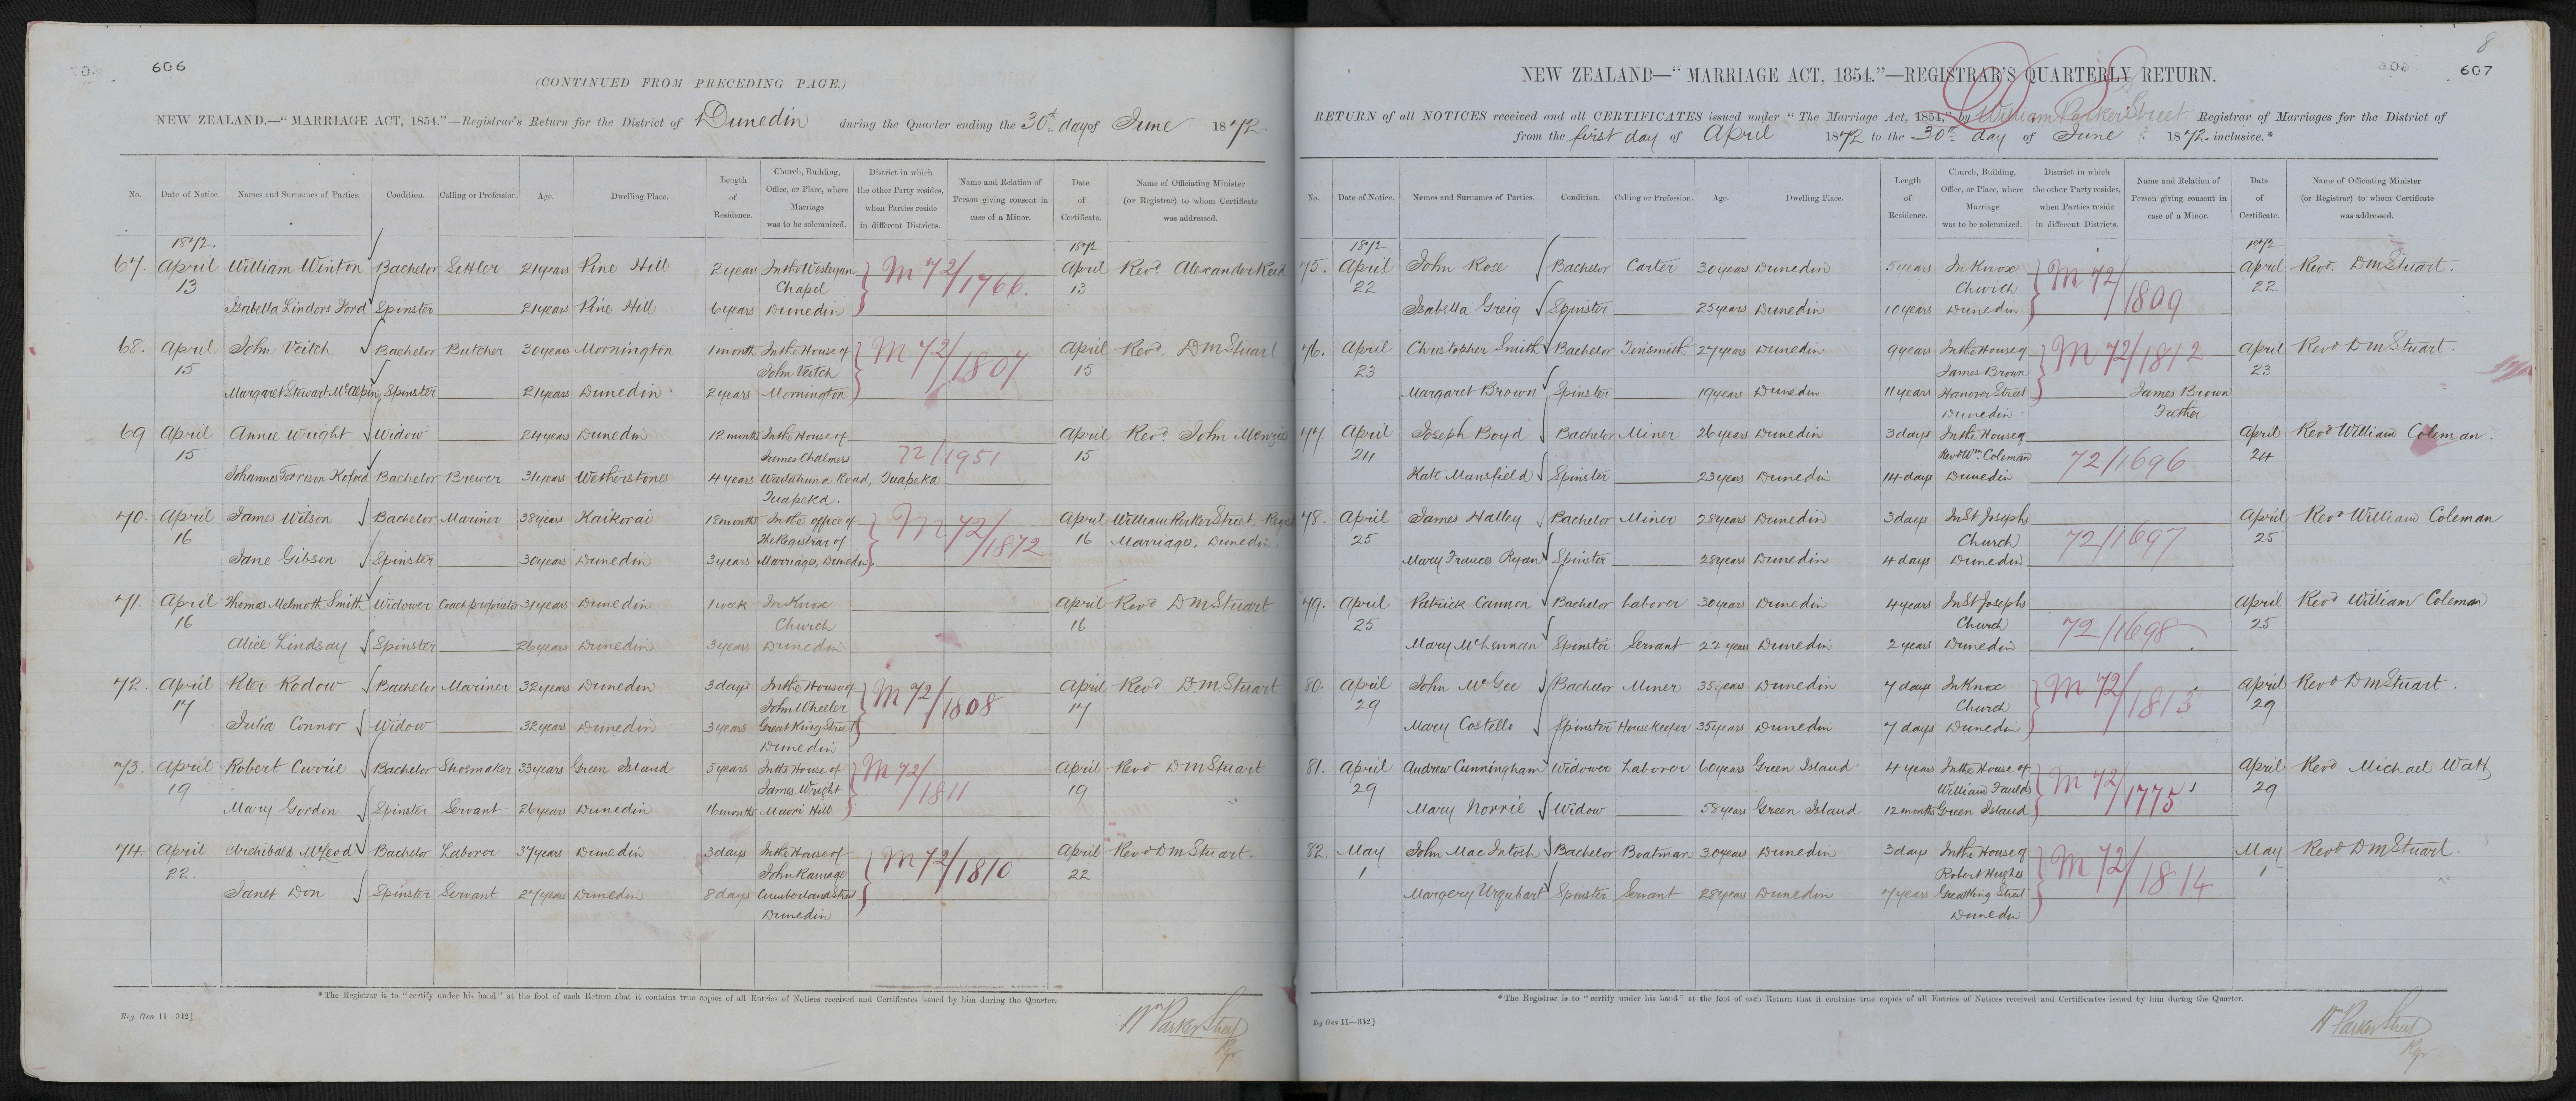 606
(CONTINUED FROM PRECEDING PAGE.)
NEW ZEALAND.—"MARRIAGE ACT, 1854."—Registrar's Return for the District of Dunedin during the Quarter ending the 30th day of June 1872.
No. Date of Notice. Names and Surnames of Parties. Condition. Calling or Profession. Age. Dwelling Place. Length of Residence. Church, Building, Office, or Place, where Marriage was to be solemnized. District in which the other Party resides, when Parties reside in different Districts. Name and Relation of Person giving consent in case of a Minor. Date of Certificate. Name of Officiating Minister (or Registrar) to whom Certificate was addressed.
1872. 1872
67. April William Winton Bachelor Settler 21 years Pine Hill 2 years In the Wesleyan M 72/1766. April Revd. Alexander Reid
13 Chapel 13
Isabella Lindors Ford Spinster 21 years Pine Hill 6 years Dunedin
68. April John Veitch Bachelor Butcher 30 years Mornington 1 month In the House of M 72/1807 April Revd. D M Stuart
15 John Veitch 15
Margaret Stewart McAlpin Spinster 21 years Dunedin 2 years Mornington
69 April Annie Wright Widow 24 years Dunedin 12 months In the House of April Revd. John Menzies
15 James Chalmers 72/1951 15
Johannes Torrison Kofoed Bachelor Brewer 31 years Wetherstones 4 years Waitahuna Road, Tuapeka
Tuapeka.
70. April James Wilson Bachelor Mariner 38 years Kaikorai 18 months In the office of M 72/1872 April William Parker Street Regist
16 The Registrar of 16 Marriages, Dunedin.
Jane Gibson Spinster 30 years Dunedin 3 years Marriages, Dunedin.
71. April Thomas Melmoth Smith Widower Coach proprietor 31 years Dunedin 1 week In Knox April Revd D M Stuart
16 Church 16
Alice Lindsay Spinster 26 years Dunedin 3 years Dunedin
72. April Peter Rodow Bachelor Mariner 32 years Dunedin 3 days In the House of M 72/1808 April Revd D M Stuart
17 John Wheeler 17
Julia Connor Widow 32 years Dunedin 3 years Great King Street
Dunedin
73. April Robert Currie Bachelor Shoemaker 33 years Green Island 5 years In the House of M 72/1811 April Revd D M Stuart
19 James Wright 19
Mary Gordon Spinster Servant 26 years Dunedin 16 months Maori Hill
74. April Archibald McLeod Bachelor Laborer 37 years Dunedin 3 days In the House of M 72/1810 April Revd D M Stuart.
22. John Ramage 22
Janet Don Spinster Servant 27 years Dunedin 8 days Cumberland Street
Dunedin
*The Registrar is to "certify under his hand" at the foot of each Return that it contains true copies of all Entries of Notices received and Certificates issued by him during the Quarter.
Reg Gen 11—312]
Wm Parker Street
Rgr
8
607
NEW ZEALAND—"MARRIAGE ACT, 1854."—REGISTRAR'S QUARTERLY RETURN.
RETURN of all NOTICES received and all CERTIFICATES issued under "The Marriage Act, 1854," by William Parker Street Registrar of Marriages for the District of
from the first day of April 1872 to the 30th day of June 1872. inclusive.*
No. Date of Notice. Names and Surnames of Parties. Condition. Calling or Profession. Age. Dwelling Place. Length of Residence. Church, Building, Office, or Place, where Marriage was to be solemnized. District in which the other Party resides, when Parties reside in different Districts. Name and Relation of Person giving consent in case of a Minor. Date of Certificate. Name of Officiating Minister (or Registrar) to whom Certificate was addressed.
1872 1872
75. April John Rose Bachelor Carter 30 years Dunedin 5 years In Knox M 72/1809 April Revd. D M Stuart.
22 Church 22
Isabella Greig Spinster 25 years Dunedin 10 years Dunedin
76. April Christopher Smith Bachelor Tinsmith 27 years Dunedin 9 years In the House of M 72/1812 April Revd D M Stuart.
23 James Brown 23
Margaret Brown Spinster 19 years Dunedin 11 years Hanover Street James Brown
Dunedin Father
77. April Joseph Boyd Bachelor Miner 26 years Dunedin 3 days In the House of April Revd William Coleman.
24 Revd Wm. Coleman 72/1696 24
Kate Mansfield Spinster 23 years Dunedin 14 days Dunedin
78. April James Halley Bachelor Miner 28 years Dunedin 3 days In St Josephs April Revd William Coleman
25 Church 72/1697 25
Mary Frances Ryan Spinster 28 years Dunedin 4 days Dunedin
79. April Patrick Cannon Bachelor Laborer 30 years Dunedin 4 years In St Josephs April Revd William Coleman
25 Church 72/1698 25
Mary McLennan Spinster Servant 22 years Dunedin 2 years Dunedin
80. April John McGee Bachelor Miner 35 years Dunedin 7 days In Knox M 72/1813 April Revd D M Stuart.
29 Church 29
Mary Costello Spinster Housekeeper 35 years Dunedin 7 days Dunedin
81. April Andrew Cunningham Widower Laborer 60 years Green Island 4 years In the House of M 72/1775 April Revd Michael Watt
29 William Faulds 29
Mary Norrie Widow 58 years Green Island 12 months Green Island
82. May John Mac Intosh Bachelor Boatman 30 years Dunedin 3 days In the House of M 72/1814 May Revd D M Stuart.
1 Robert Hughes 1
Margery Urquhart Spinster Servant 28 years Dunedin 7 years Great King Street
Dunedin
*The Registrar is to "certify under his hand" at the foot of each Return that it contains true copies of all Entries of Notices received and Certificates issued by him during the Quarter.
Reg Gen 11—312]
Wm Parker Street
Rgr